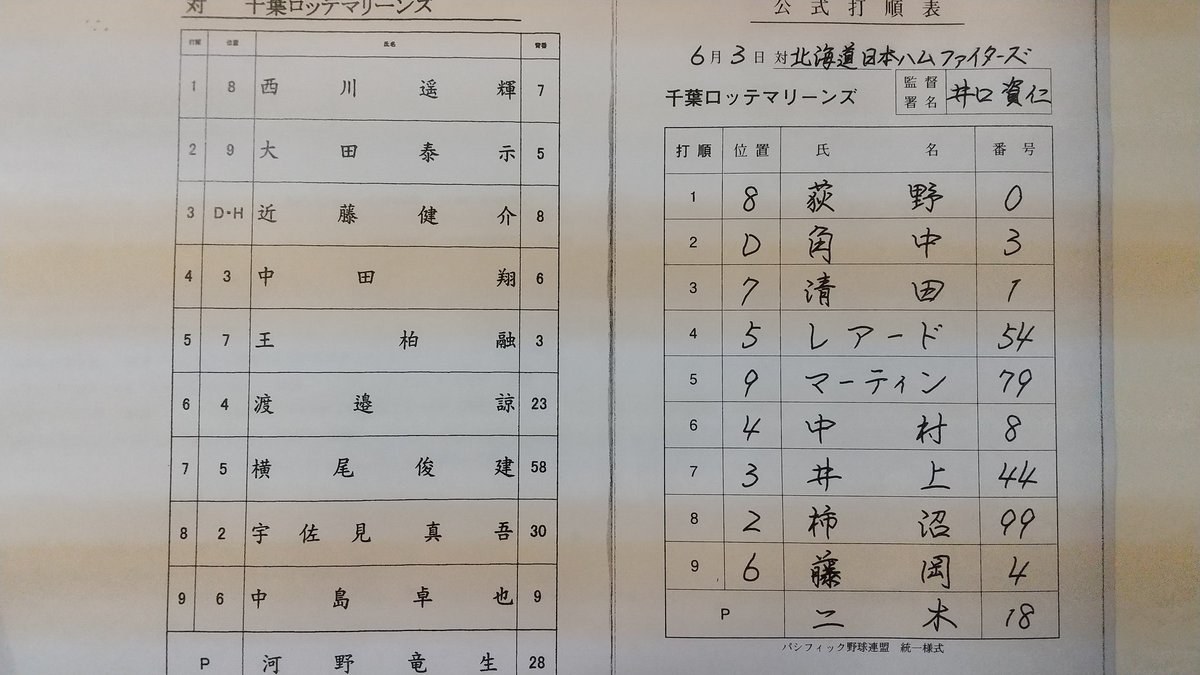 対 千葉ロッテマリーンズ
打順 位置 氏名 背番
1 8 西川遥輝 7
2 9 大田泰示 5
3 D・H 近藤健介 8
4 3 中田翔 6
5 7 王柏融 3
6 4 渡邉諒 23
7 5 横尾俊建 58
8 2 宇佐見真吾 30
9 6 中島卓也 9
P 河野竜生 28
公式打順表
6月3日 対 北海道日本ハムファイターズ
千葉ロッテマリーンズ 監督署名 井口資仁
打順 位置 氏名 番号
1 8 荻野 0
2 D 角中 3
3 7 清田 1
4 5 レアード 54
5 9 マーティン 79
6 4 中村 8
7 3 井上 44
8 2 柿沼 99
9 6 藤岡 4
P 二木 18
パシフィック野球連盟 統一様式